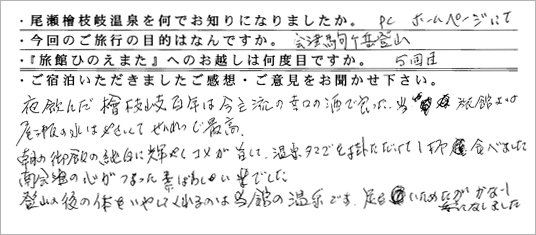 ・尾瀬檜枝岐温泉を何でお知りになりましたか。 PC ホームページにて
・今回のご旅行の目的はなんですか。 会津駒ヶ岳登山
・『旅館ひのえまた』へのお越しは何度目ですか。 5回目
・ご宿泊いただきましたご感想・ご意見をお聞かせ下さい。
夜飲んだ檜枝岐百年は今主流の辛口の酒で良った。当 旅館
尾瀬の水は せんれつで最高。
朝の御飯の純白に輝やくコメが 温泉タマゴを掛けただけで1杯食べました
南会津の心がつまった素ばらしい でした
登山の後の体をいやしてくれるのは当館の温泉です。足を いためたが かなり 楽になりました